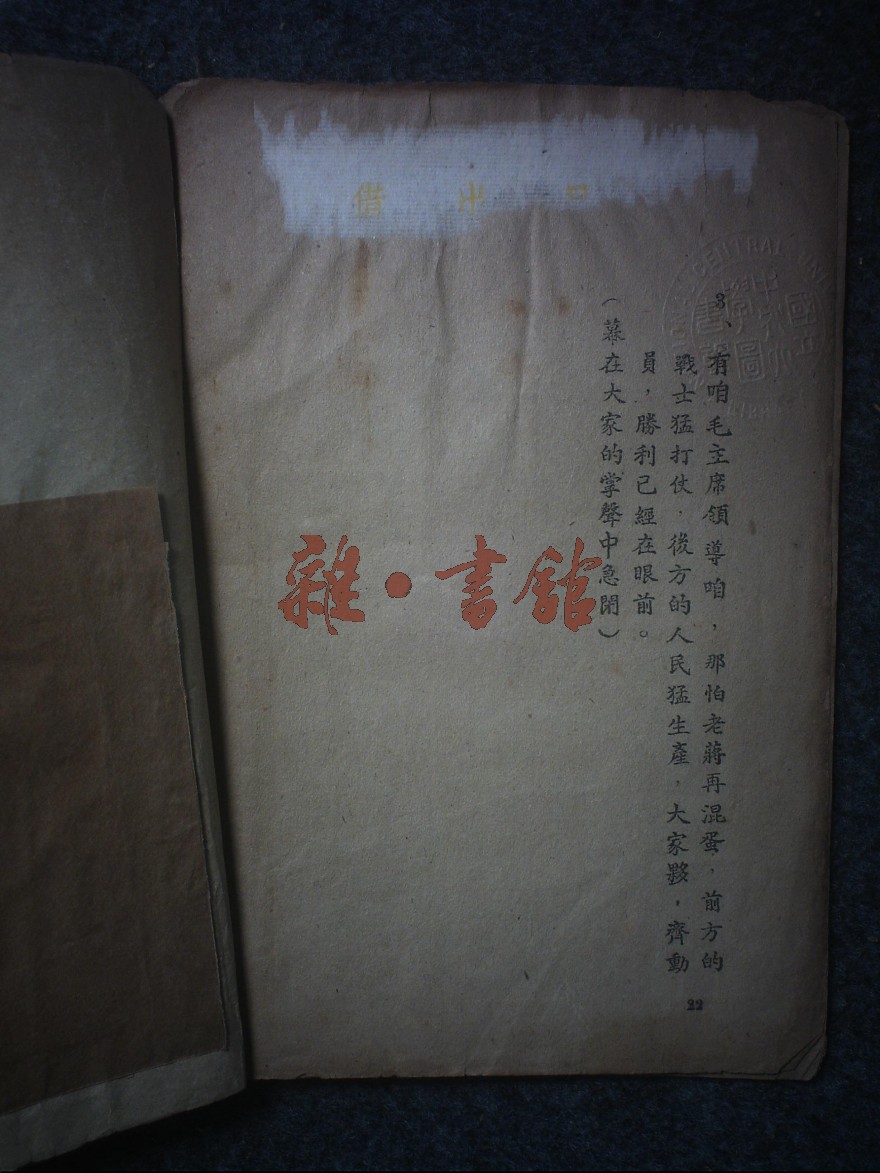 借出
CENTRAL
3、有咱毛主席領導咱，那怕老蔣再混蛋，前方的
戰士猛打仗，後方的人民猛生產，大家夥，齊動
員，勝利已經在眼前。
（幕在大家的掌聲中急閉）
22
雜·書館